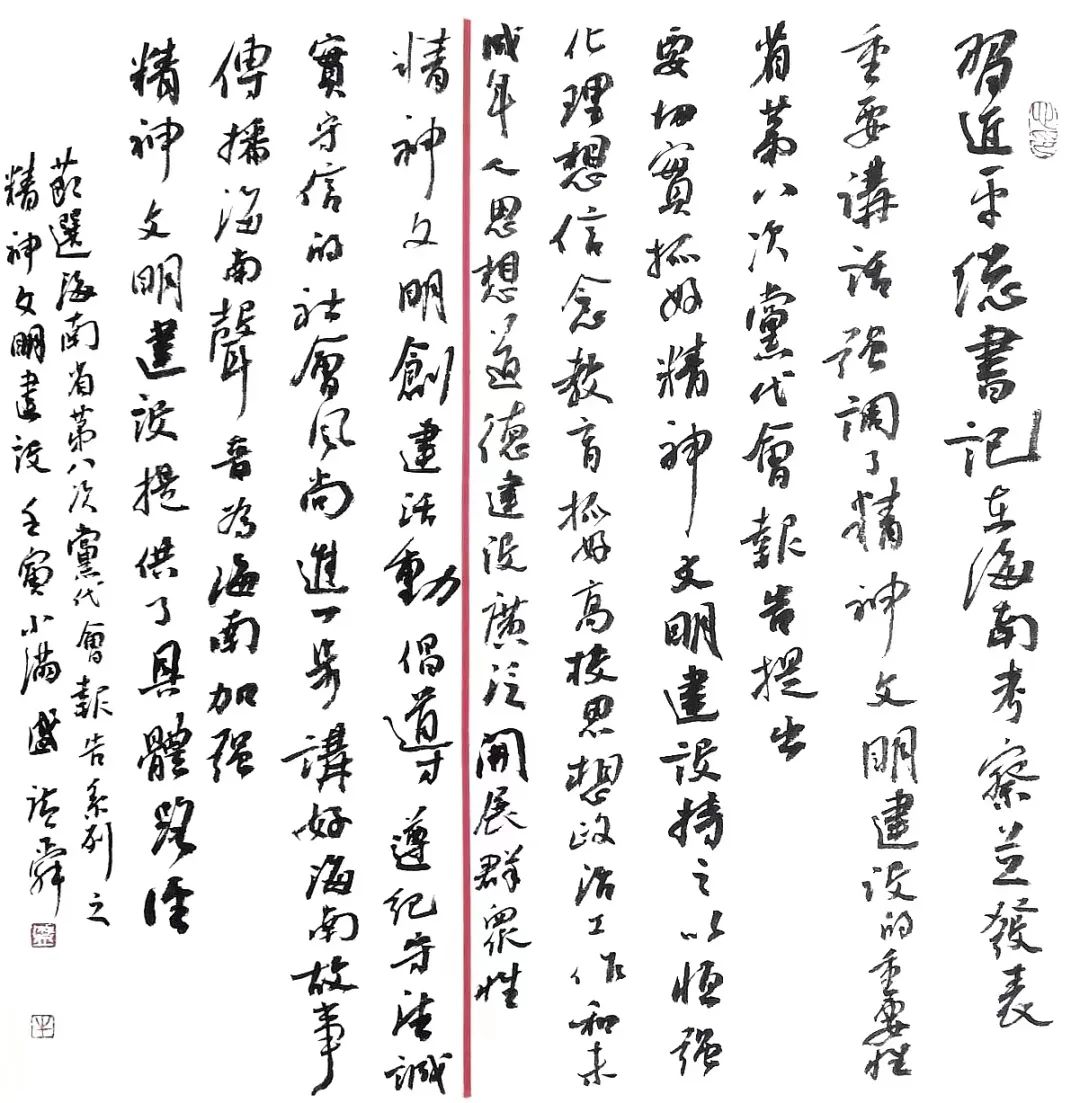 習近平總書記在海南考察並發表
重要講話强調了精神文明建設的重要性
省第八次黨代會報告提出
要切實抓好精神文明建設持之以恒强
化理想信念教育抓好高校思想政治工作和未
成年人思想道德建設廣泛開展群眾性
精神文明創建活動倡導遵紀守法誠
實守信的社會風尚進一步講好海南故事
傳播海南聲音為海南加强
精神文明建設提供了具體路徑
節選海南省第八次黨代會報告系列之
精神文明建設壬寅小滿盛